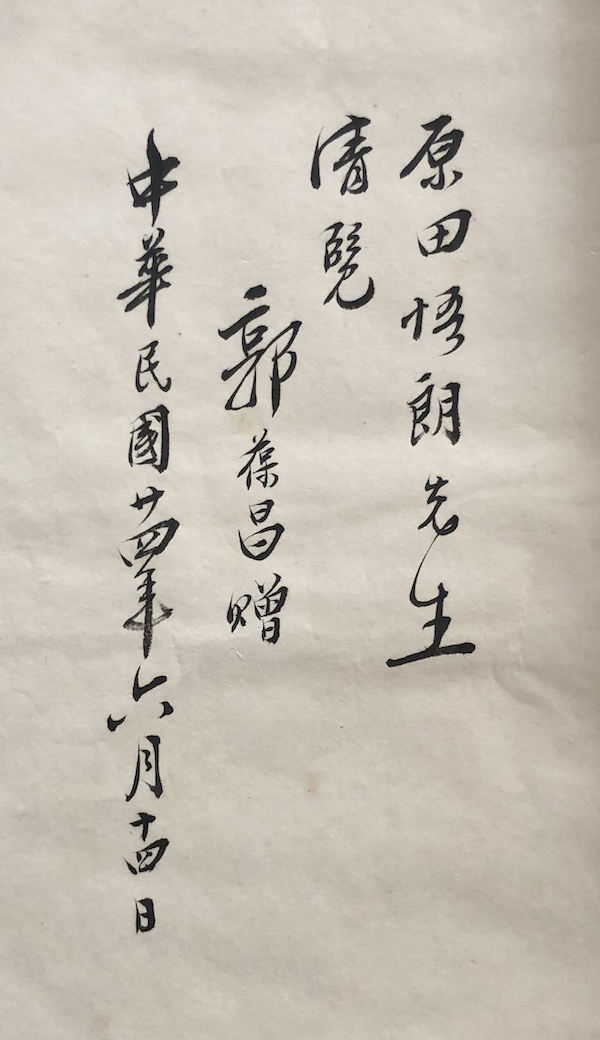 原田悟朗先生
清覽
郭葆昌贈
中華民國廿四年六月十四日